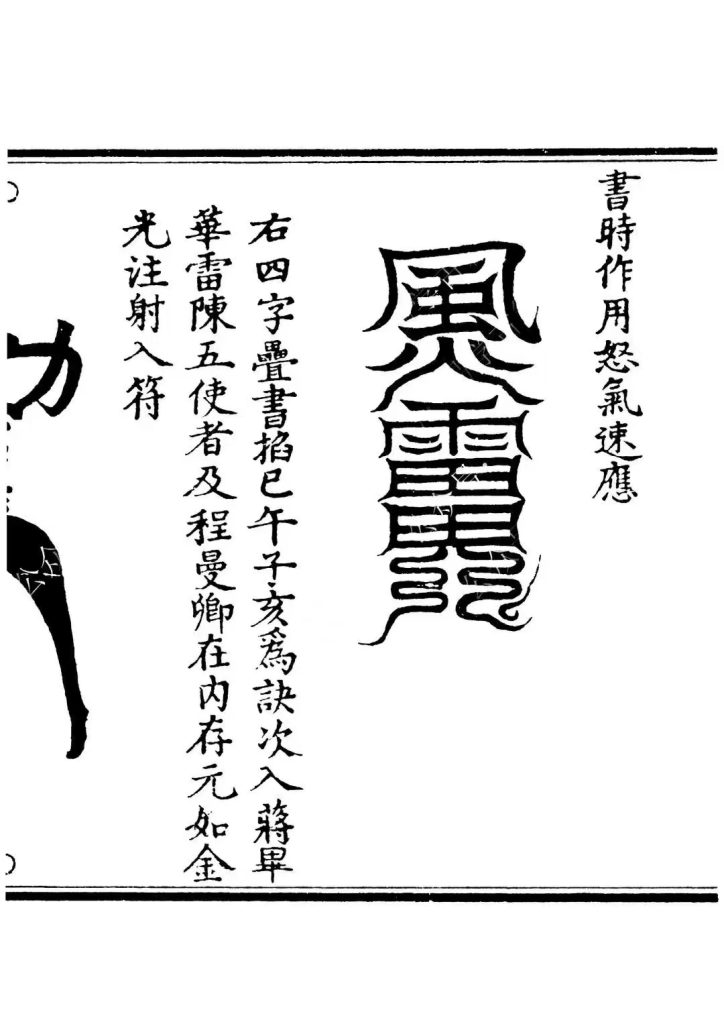 書時作用怒氣速應
右四字疊書掐巳午子亥爲訣次入蔣畢
華雷陳五使者及程曼卿在内存元如金
光注射入符